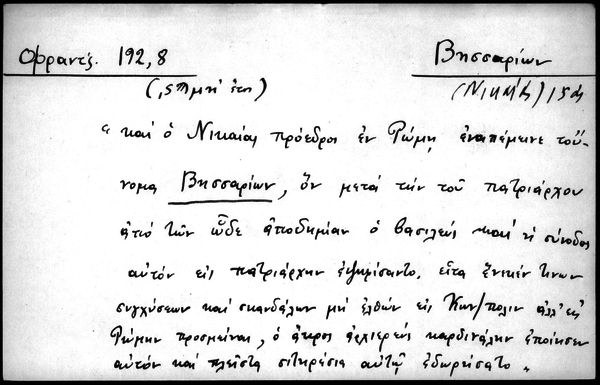 Σφραντζ. 192,8 Βησσαρίων
(͵ϛϡμη' ἔτη) (Νικαίας) 15ος
"καὶ ὁ Νικαίας πρόεδρος ἐν Ρώμῃ ἐναπέμεινε τοὔ-
νομα Βησσαρίων, ὃν μετὰ τὴν τοῦ πατριάρχου
ἀπὸ τῶν ὧδε ἀποδημίαν ὁ βασιλεὺς καὶ ἡ σύνοδος
αὐτὸν εἰς πατριάρχην ἐψηφίσαντο. εἶτα ἕνεκέν τινων
συγχύσεων καὶ σκανδάλων μὴ ἐλθὼν εἰς Κων/πολιν ἀλλ' εἰς
Ρώμην προσμείνας, ὁ ἄκρος ἀρχιερεὺς καρδινάλην ἐποίησεν
αὐτὸν καὶ πλεῖστα σιτηρέσια αὐτῷ ἐδωρήσατο".